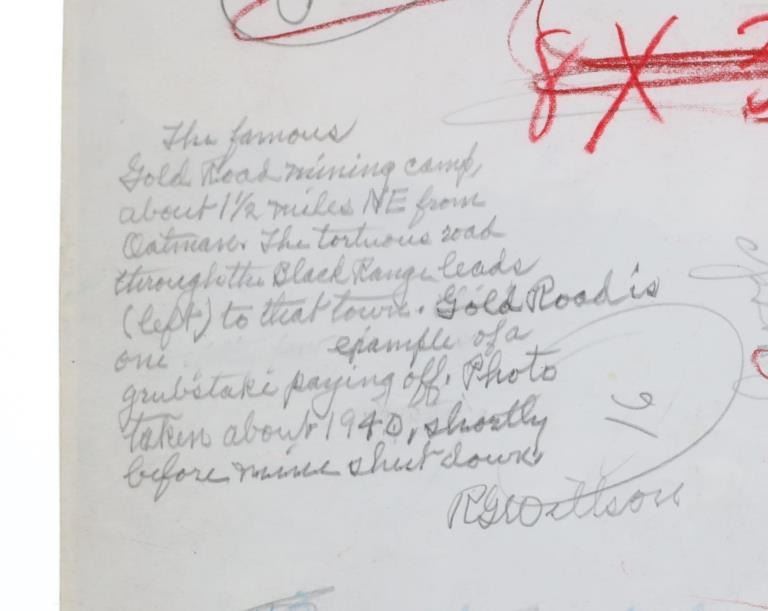 8 X
The famous
Gold Road mining camp,
about 1 1/2 miles NE from
Oatman. The tortuous road
through the Black Range leads
(left) to that town. Gold Road is
one example of a
grubstake paying off. Photo
taken about 1940, shortly
before mine shut down.
RGWillson